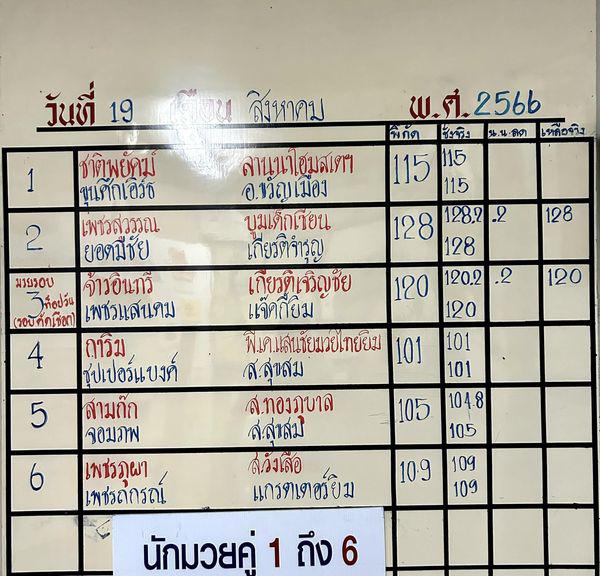 วันที่ 19 เดือน สิงหาคม พ.ศ. 2566
พิกัด ชั่งจริง น.น.ลด เหลือจริง
1 ชาติพยัคฆ์ ลานนาโฮมสเตฯ 115 115
ขุนศึกเอิร์ธ อ.ขวัญเมือง 115
2 เพชรสวรรณ บูมเด็กเซียน 128 128.2 .2 128
ยอดมีชัย เกียรติจำรูญ 128
มวยรอบ
3 จ้าวอินทรี เกียรติเจริญชัย 120 120.2 .2 120
(รอบคัดเลือก) เพชรแสนคม แจ๊คกี้ยิม 120
4 การิม พี.เค.แสนชัยมวยไทยยิม 101 101
ซุปเปอร์แบงค์ ส.สุขสม 101
5 สามก๊ก ส.ทองภูบาล 105 104.8
จอมภพ ส.สุขสม 105
6 เพชรภูผา ส.วังเสือ 109 109
เพชรถกรณ์ แกรตเตอร์ยิม 109
นักมวยคู่ 1 ถึง 6